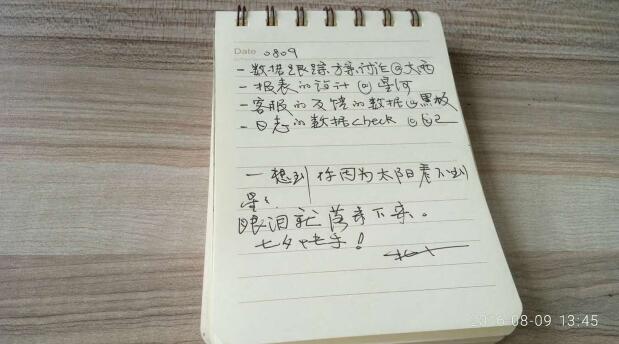 Date 0809
一数据跟踪方案讨论@大西
一报表的设计@星河
一客服的反馈的数据@黑板
一日志的数据check @
一想到你因为太阳看不到
星星
眼泪就落来下来。
七夕快乐!
2016-08-09 13:45